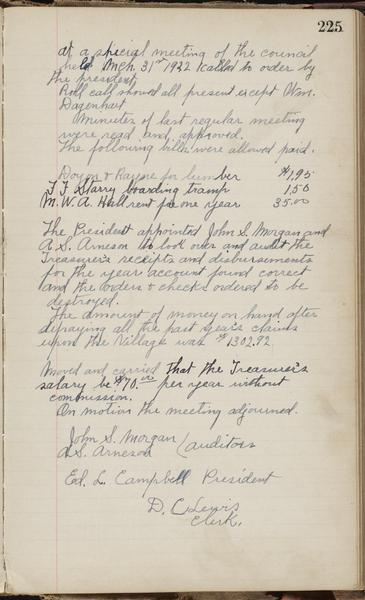 225
At a special meeting of the council
held Mch. 31st 1922 called to order by
the president
Roll call showed all present except Wm.
Dagenhart
Minutes of last regular meeting
were read and approved.
The following bills were allowed paid.
Doyon & Rayne for lumber $1.95
F F Starry boarding tramp 1.50
M. W. A. Hall rent for one year 35.00
The President appointed John S. Morgan and
A S. Arneson to look over and audit the
Treasurer's receipts and disbursements
for the year account found correct
and the orders & checks ordered to be
destroyed.
The amount of money on hand after
defraying all the past year's claims
upon the Village was $1302.92
Moved and carried that the Treasurer's
salary be $70.00 per year without
commission.
On motion the meeting adjourned.
John S. Morgan
A S. Arneson (auditors
Ed. L. Campbell President
D. C Lewis
Clerk.